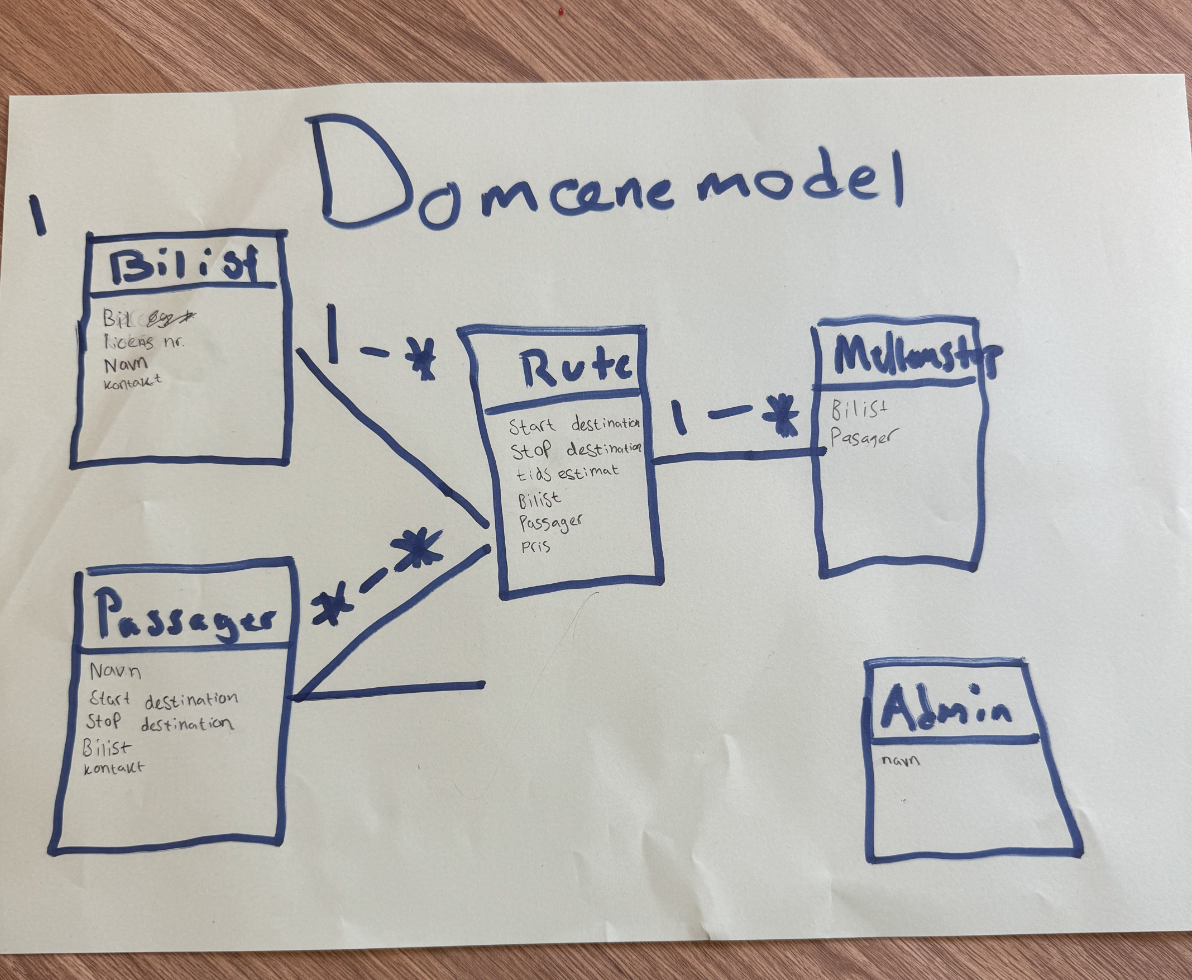 Domæne model
1
Bilist
Bil
licens nr.
Navn
kontakt
1 - *
Rute
Start destination
Stop destination
tids estimat
Bilist
Passager
Pris
1 - *
Mellemstop
Bilist
Pasager
* - *
Passager
Navn
Start destination
Stop destination
Bilist
kontakt
Admin
navn